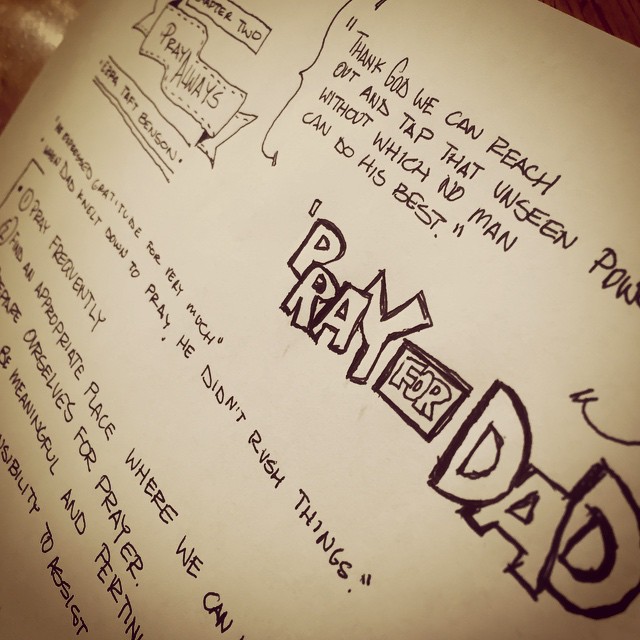 CHAPTER TWO
PRAY ALWAYS
"EZRA TAFT BENSON"
"THANK GOD WE CAN REACH
OUT AND TAP THAT UNSEEN
WITHOUT WHICH NO MAN
CAN DO HIS BEST."
"HE EXPRESSED GRATITUDE FOR VERY MUCH"
"WHEN DAD KNELT DOWN TO PRAY, HE DIDN'T RUSH THINGS."
① PRAY FREQUENTLY
② FIND AN APPROPRIATE PLACE WHERE WE CAN
OURSELVES FOR PRAYER.
BE MEANINGFUL AND
TO ASSIST
"PRAY
FOR
DAD